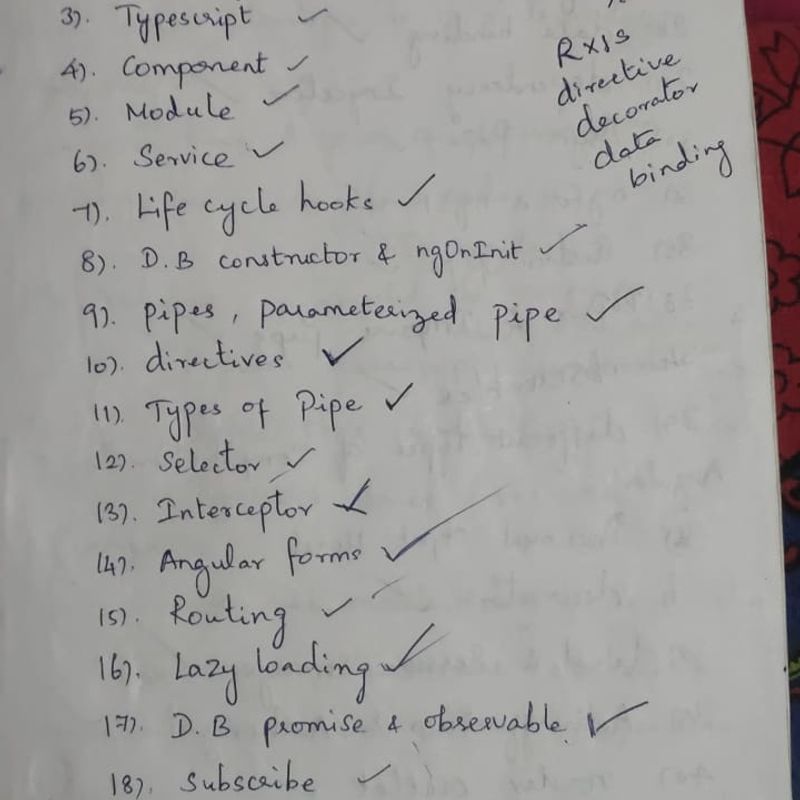 3). Typescript
4). Component
5). Module
6). Service
7). Life cycle hooks
8). D.B constructor & ngOnInit
9). pipes, parameterized pipe
10). directives
11). Types of Pipe
12). Selector
13). Interceptor
14). Angular forms
15). Routing
16). Lazy loading
17). D.B promise & observable
18). Subscribe
RxJS
directive
decorator
data
binding